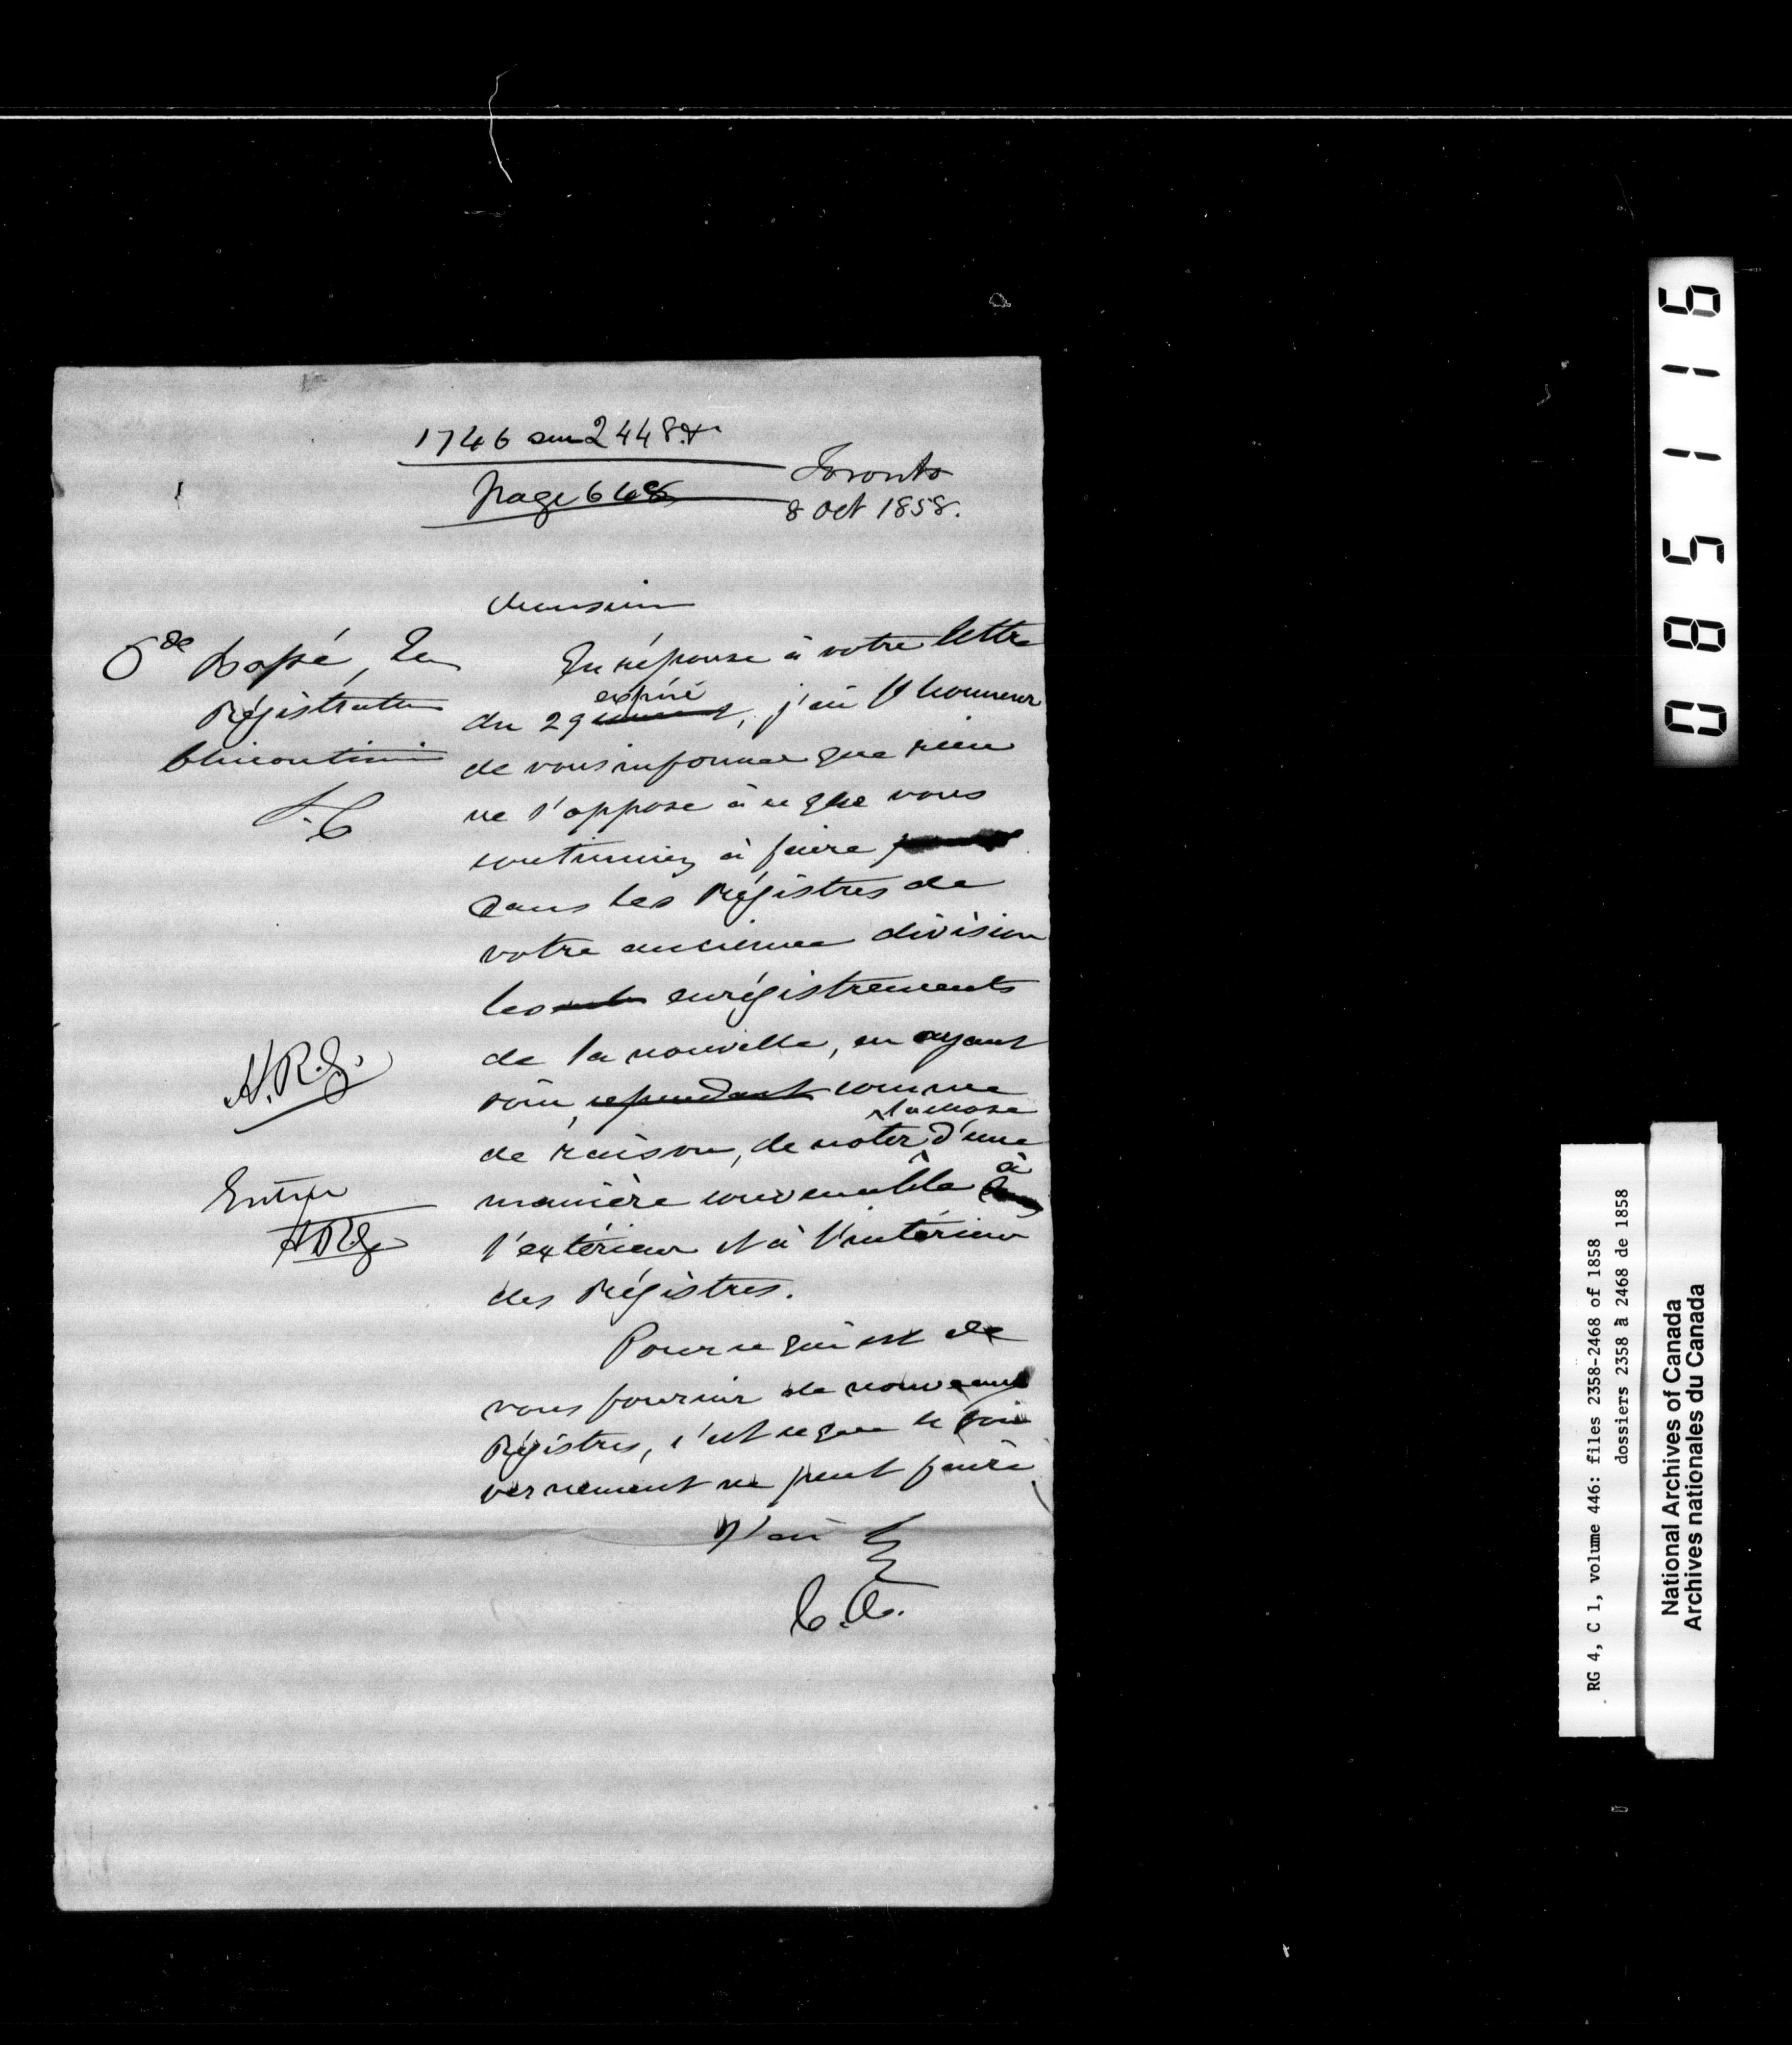 1746 sur 2448.
page 648
Toronto
8 Oct 1858.
Monsieur
Ode Bossé, Er
Régistrateur
Chicoutimi
En réponse à votre lettre
du 29 expiré, j'ai l'honneur
de vous informer que rien
ne s'oppose à ce que vous
continuiez à faire
dans les Régistres de
votre ancienne division
les enrégistrements
de la nouvelle, en ayant
soin, cependant comme
de raison, de noter la chose d'une
manière convenable à
l'extérieur et à l'intérieur
des Régistres.
Pour ce qui est de
vous fournir de nouveaux
Régistres, c'est ce que le Gou
vernement ne peut faire
J'ai &
C. A.
H.R.G.
Entrée
H.R.G.
085116
RG 4, C 1, volume 446: files 2358-2468 of 1858
dossiers 2358 à 2468 de 1858
National Archives of Canada
Archives nationales du Canada